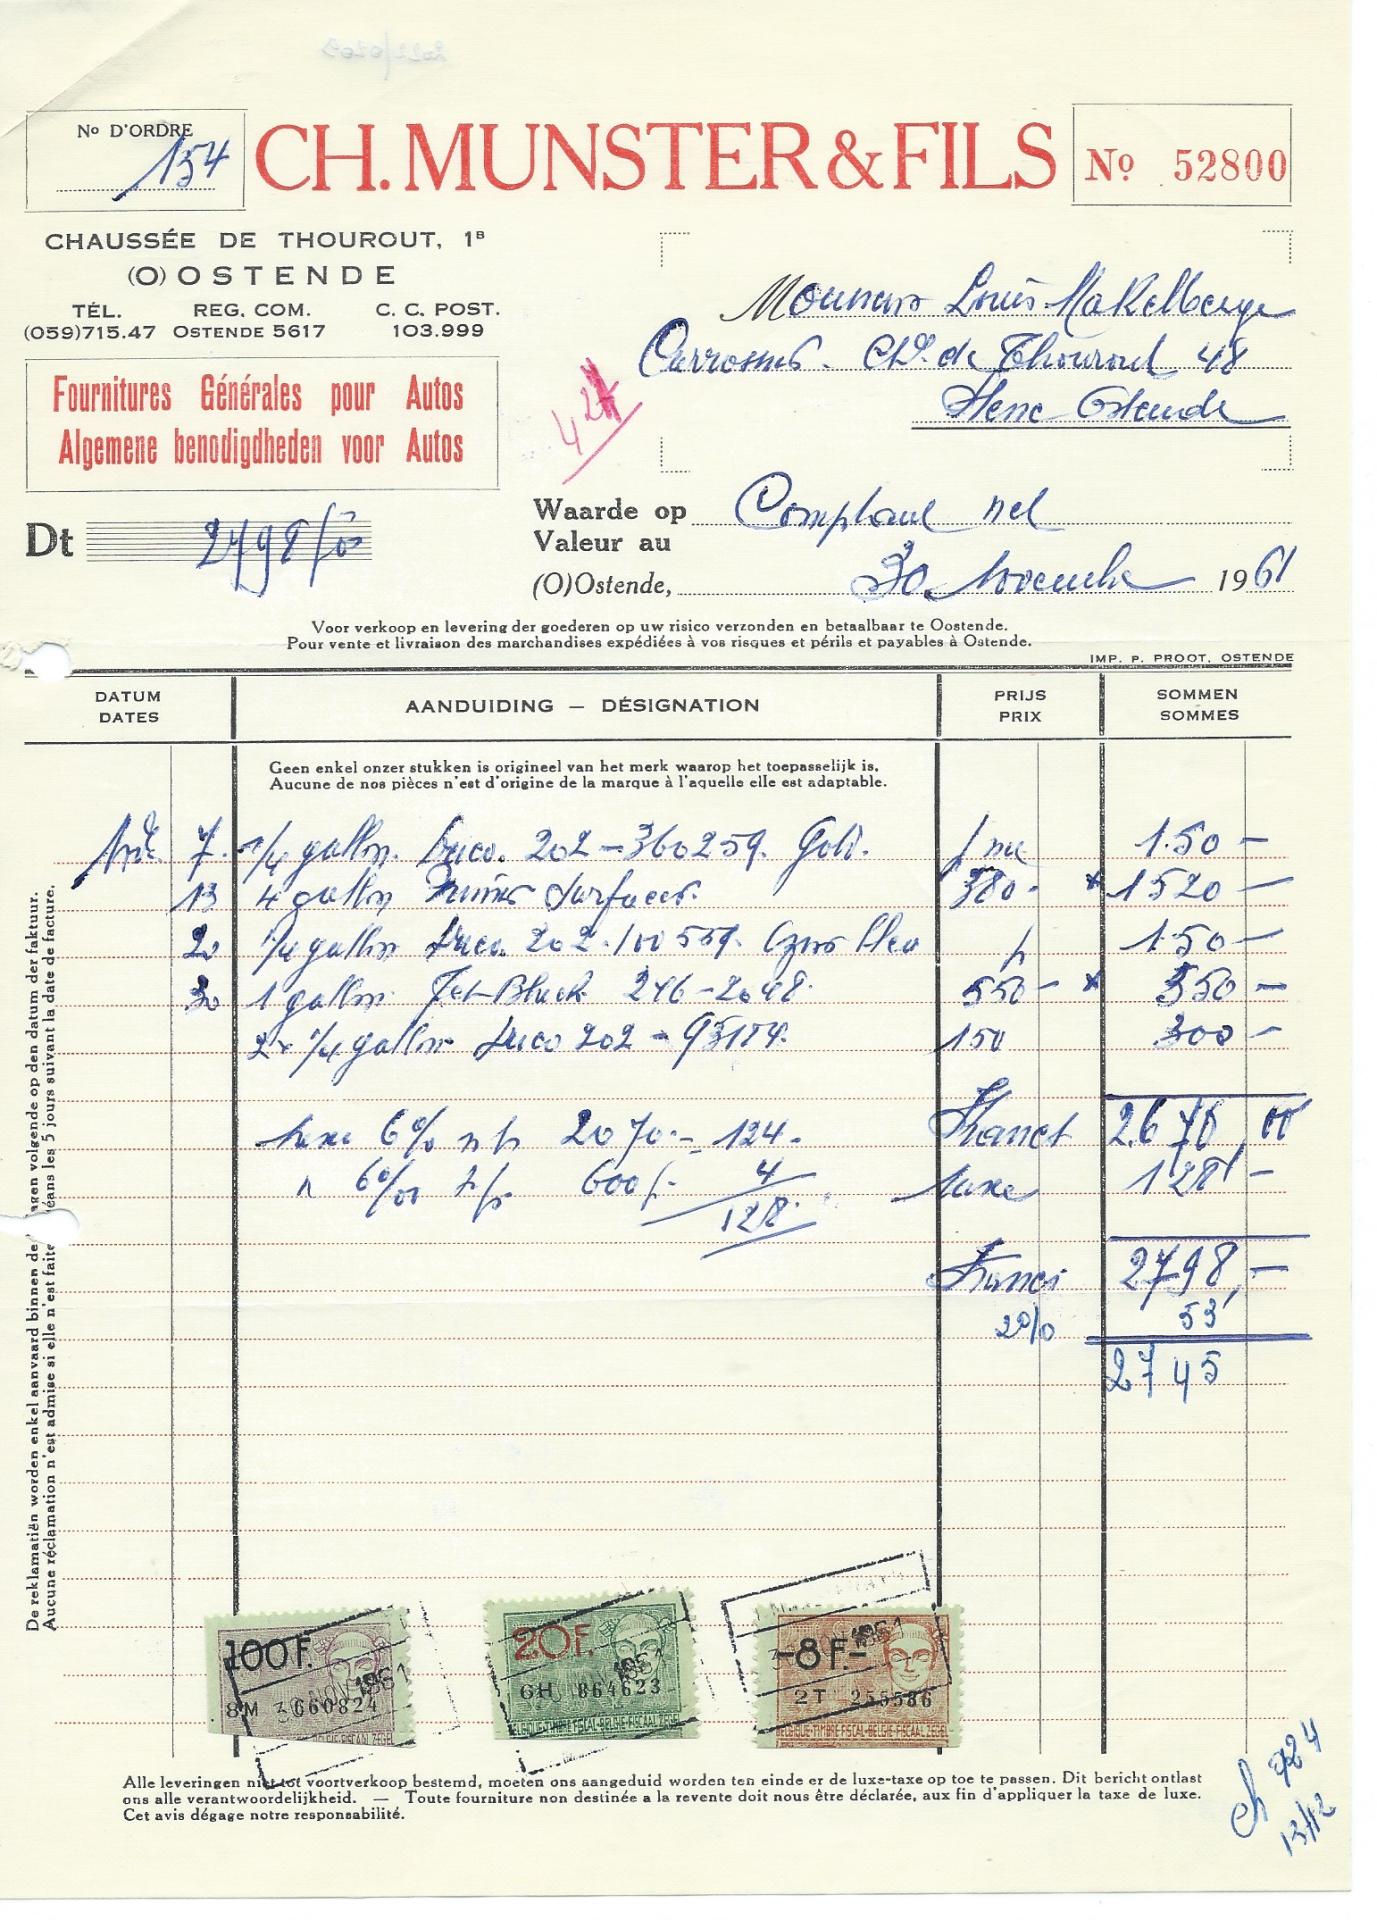 No D'ORDRE
154
CH. MUNSTER & FILS
No 52800
CHAUSSÉE DE THOUROUT, 1B
(O)OSTENDE
TÉL. REG. COM. C. C. POST.
(059)715.47 OSTENDE 5617 103.999
Fournitures Générales pour Autos
Algemene benodigdheden voor Autos
Louis Makelberge
Ch. de Thourout 48
Ostende
427
Dt 2798/00
Waarde op
Valeur au
Comptant net
(O)Ostende, 30 Novembre 1961
Voor verkoop en levering der goederen op uw risico verzonden en betaalbaar te Oostende.
Pour vente et livraison des marchandises expédiées à vos risques et périls et payables à Ostende.
IMP. P. PROOT, OSTENDE
DATUM AANDUIDING — DÉSIGNATION PRIJS SOMMEN
DATES PRIX SOMMES
Geen enkel onzer stukken is origineel van het merk waarop het toepasselijk is.
Aucune de nos pièces n'est d'origine de la marque à l'aquelle elle est adaptable.
7 1/4 gallon Duco 202-360259. Gold. 150 -
13 4 gallon Surfacer. 380 - * 1520 -
20 1/4 gallon Duco 202.100559. 150 -
30 1 gallon Jet-Black 246-2048. 550 - * 550 -
2 x 1/4 gallon Duco 202-95184. 150 300 -
taxe 6% 2070.- 124.- 2670 00
6‰ 600 4 taxe 128 -
128.
Francs 2798,-
2% 53
2745
De reklamatiën worden enkel aanvaard binnen de dagen volgende op den datum der faktuur.
Aucune réclamation n'est admise si elle n'est faite dans les 5 jours suivant la date de facture.
100F. 20F. -8F.-
8M 660824 GH 864623 2T 255586
30 NOV 1961
BELGIQUE-TIMBRE FISCAL-BELGIE-FISCAAL ZEGEL
Alle leveringen niet tot voortverkoop bestemd, moeten ons aangeduid worden ten einde er de luxe-taxe op toe te passen. Dit bericht ontlast
ons alle verantwoordelijkheid. — Toute fourniture non destinée a la revente doit nous être déclarée, aux fin d'appliquer la taxe de luxe.
Cet avis dégage notre responsabilité.
ch
13/12